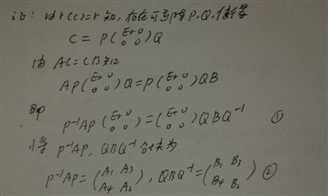 证：由r(C)=r知，存在可逆阵P、Q，使得
C = P(Er 0 0 0)Q
由 AC=CB知
AP(Er 0 0 0)Q=P(Er 0 0 0)QB
即
P⁻¹AP(Er 0 0 0)=(Er 0 0 0)QBQ⁻¹ ①
将 P⁻¹AP, QBQ⁻¹ 分块为
P⁻¹AP=(A₁ A₃ A₄ A₂), QBQ⁻¹=(B₁ B₃ B₄ B₂) ②